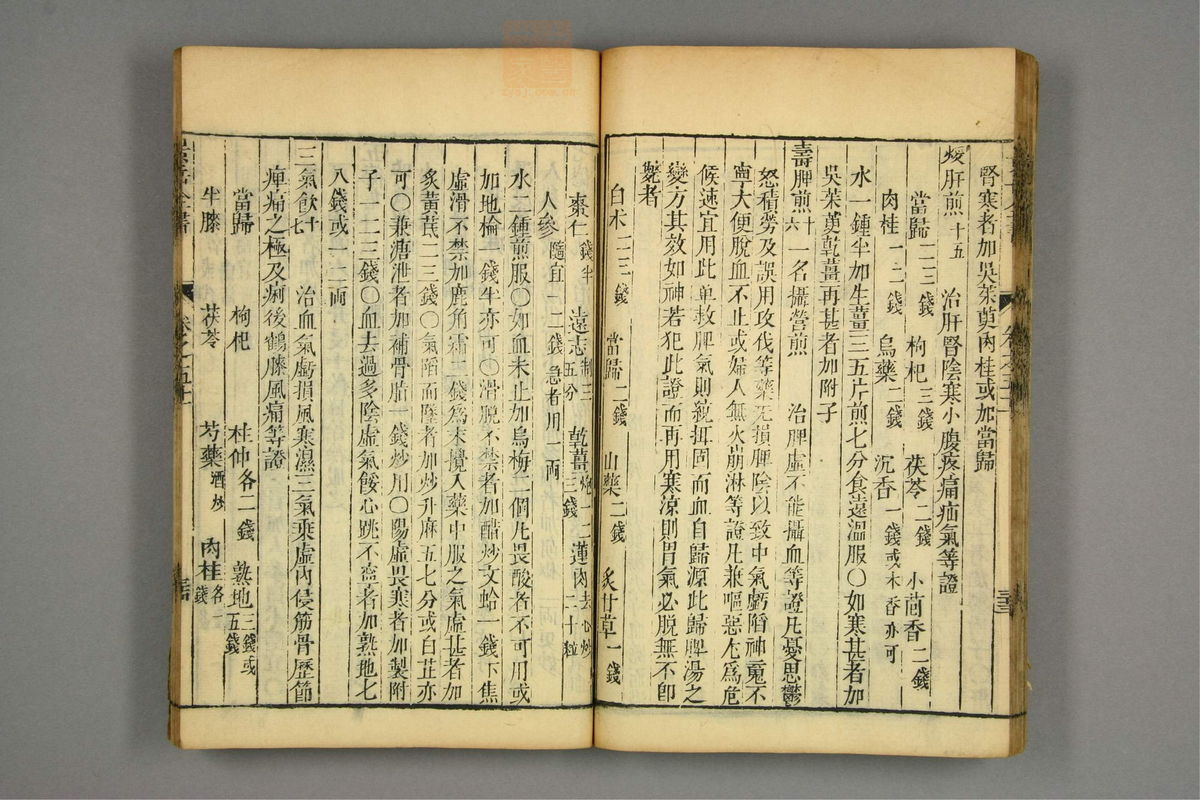 腎寒者加吳茱萸肉桂或加當歸
煖肝煎十五 治肝腎陰寒小腹疼痛疝氣等證
當歸二三錢 枸杞三錢 茯苓二錢 小茴香二錢
肉桂一二錢 烏藥二錢 沉香一錢或木香亦可
水一鍾半加生薑三五片煎七分食遠溫服〇如寒甚者加
吳茱萸乾薑再甚者加附子
壽脾煎十六 一名攝營煎 治脾虛不能攝血等證凡憂思鬱
怒積勞及誤用攻伐等藥犯損脾陰以致中氣虧陷神䰟不
寧大便脫血不止或婦人無火崩淋等證凡兼嘔惡尤爲危
候速宜用此单救脾氣則統攝固而血自歸源此歸脾湯之
變方其效如神若犯此證而再用寒涼則胃氣必脫無不即
斃者
白朮二三錢 當歸二錢 山藥二錢 炙甘草一錢
棗仁錢半 遠志制三五分 乾薑炮一二三錢 蓮肉去心炒二十粒
人參隨宜一二錢急者用一兩
水二鍾煎服〇如血未止加烏梅二個凡畏酸者不可用或
加地榆一錢半亦可〇滑脫不禁者加醋炒文蛤一錢下焦
虛滑不禁加鹿角霜二錢爲末攪入藥中服之氣虛甚者加
炙黃芪二三錢〇氣陷而墜者加炒升麻五七分或白芷亦
可〇兼溏泄者加補骨脂一錢炒用〇陽虛畏寒者加製附
子一二三錢〇血去過多陰虛氣餒心跳不寧者加熟地七
八錢或一二兩
三氣飲十七 治血氣虧損風寒濕三氣乘虛內侵筋骨歷節
痺痛之極及痢後鶴膝風痛等證
當歸 枸杞 杜仲各二錢 熟地三錢或五錢
牛膝 茯苓 芍藥酒炒 肉桂各一錢
景岳全書 卷之五十一